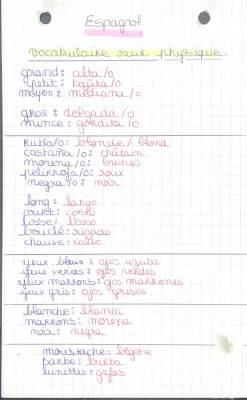 Espagnol
Vocabulaire sur physique:
grand: alta/o
petit: bajita/o
moyen: mediana/o
gros: delgada/o
mince: gordita/o
Rubia/o: blonde/blond
castaña/o: châtain
morena/o: brun
pelirroja/o: roux
negra/o: noir
long: largo
court: corto
lisse: lisso
bouclé: rizado
chauve: calvo
yeux bleus: ojos azules
yeux verts: ojos verdes
yeux marrons: ojos marrones
yeux gris: ojos grises
blanche: blanca
marrons: morena
noir: negra
moustache: bigote
barbe: barba
lunettes: gafas